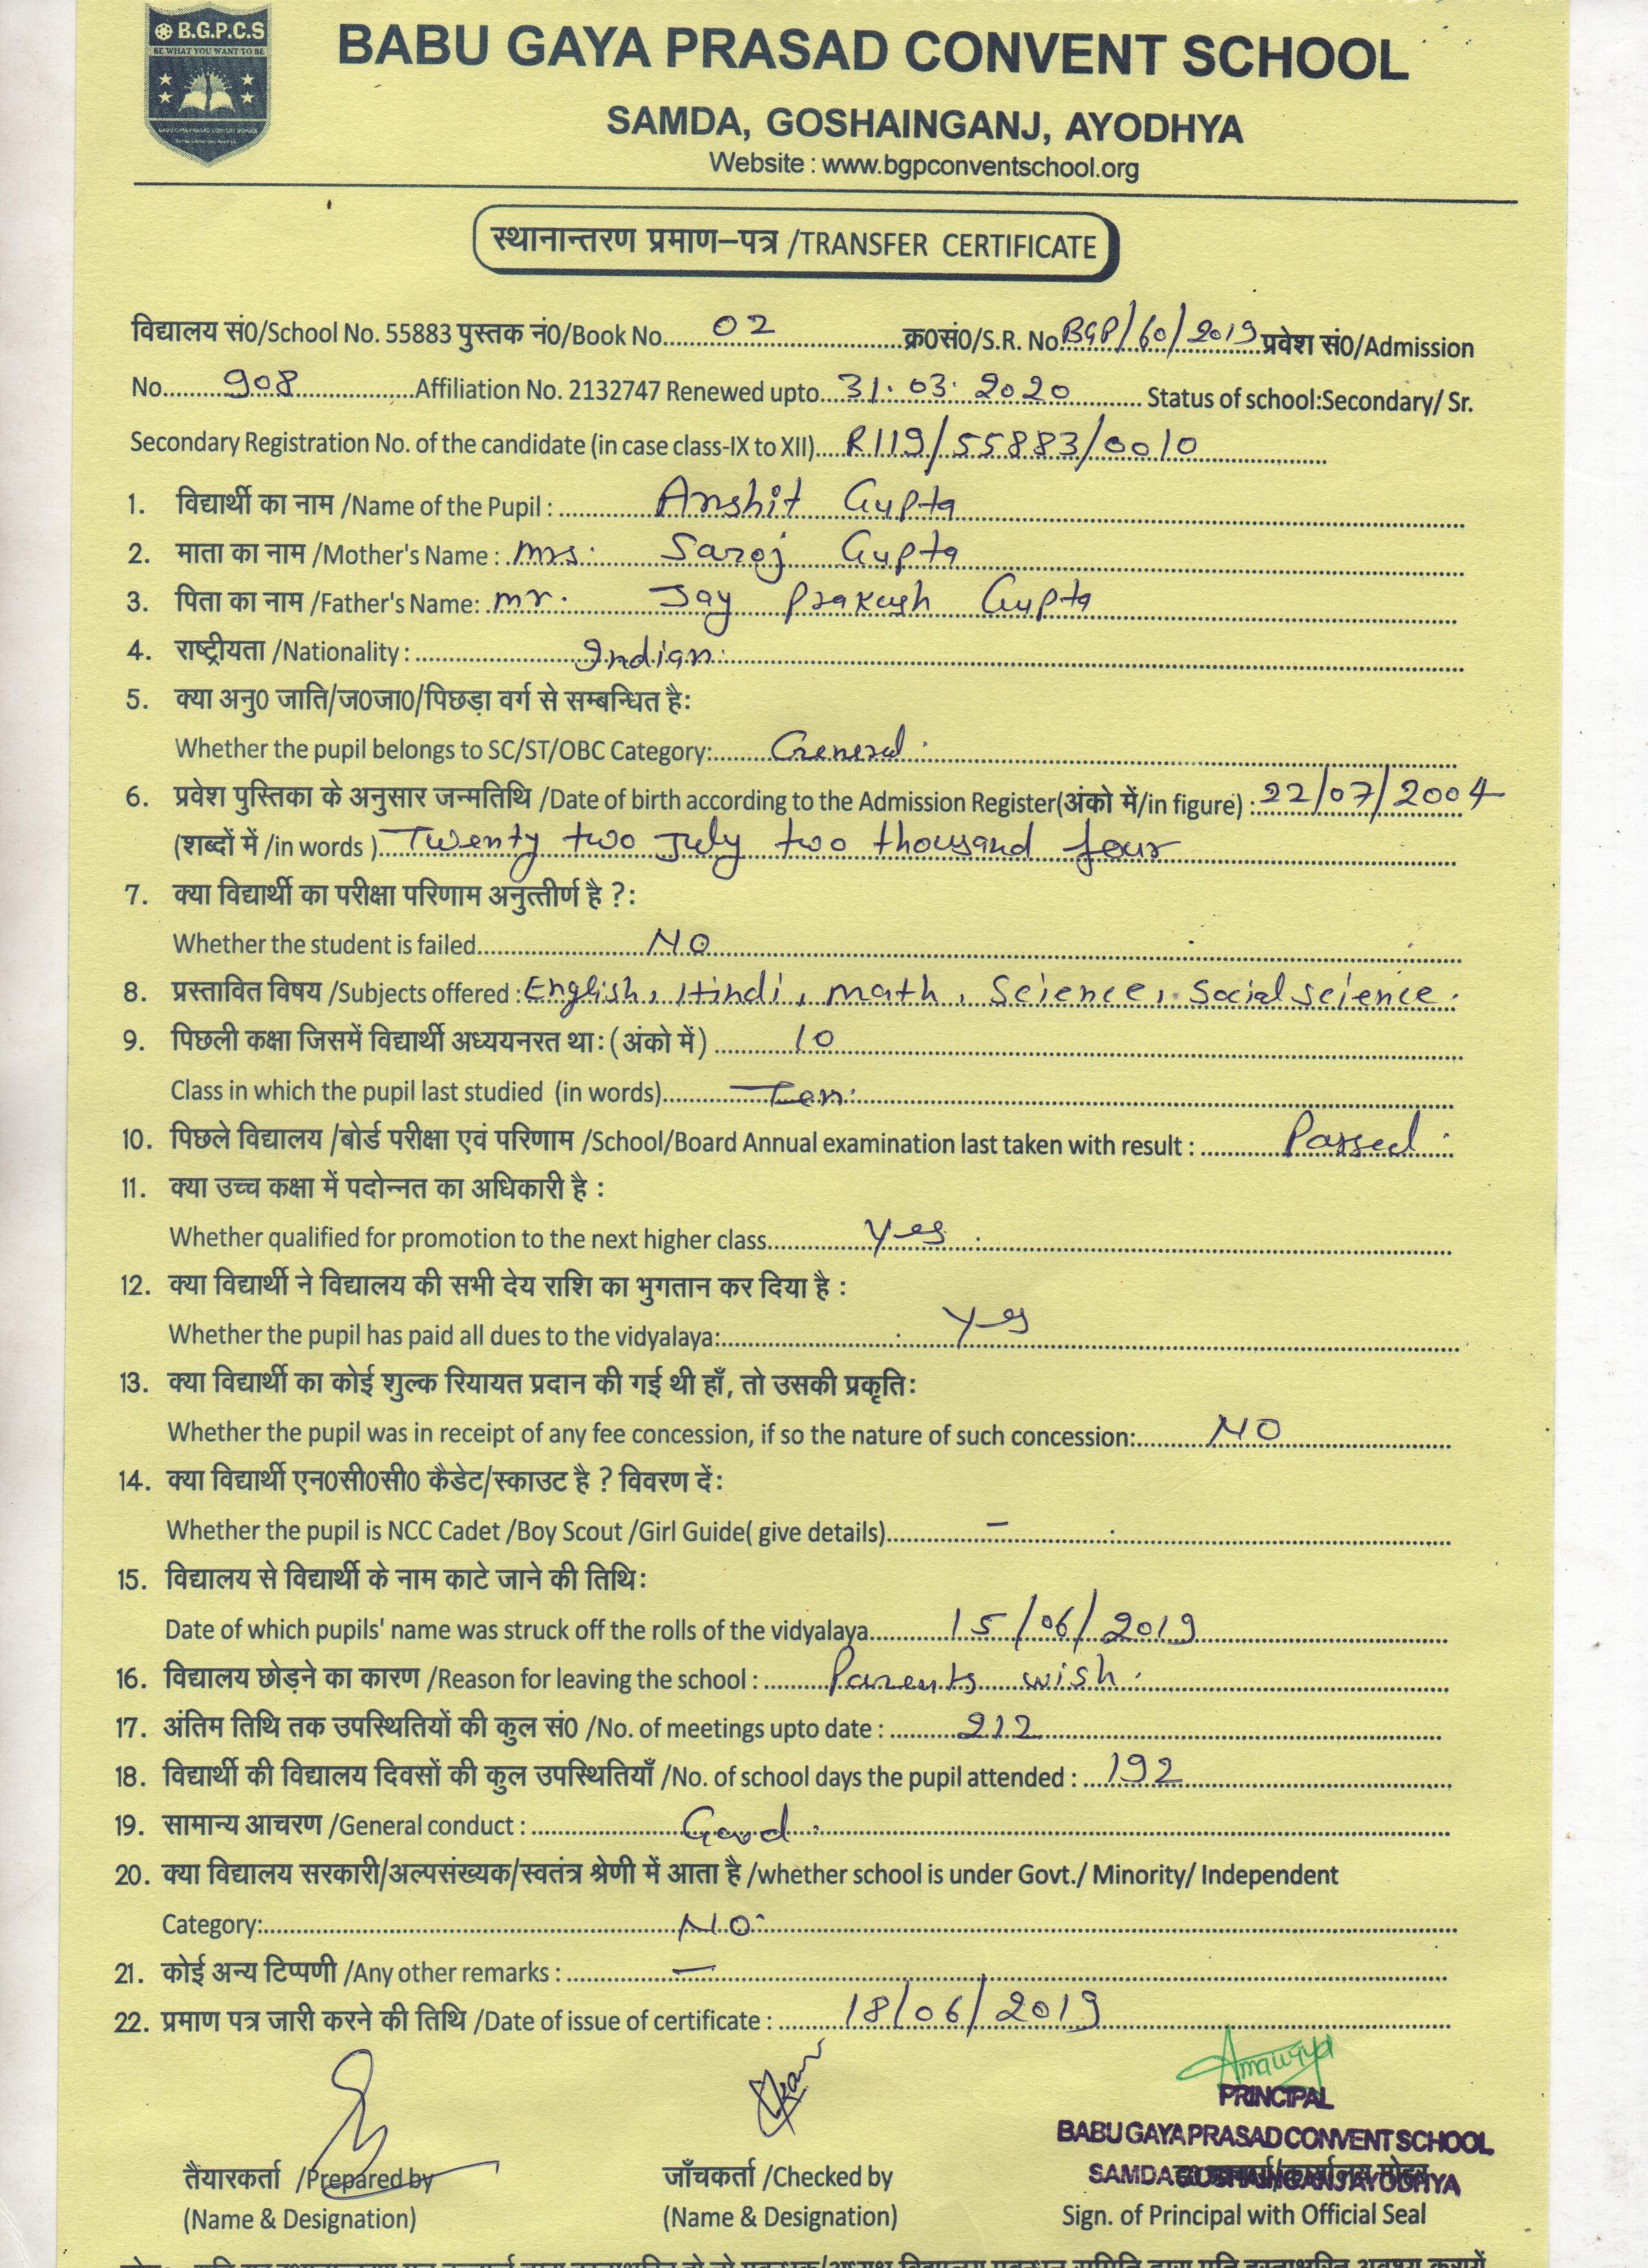 B.G.P.C.S
BE WHAT YOU WANT TO BE
BABU GAYA PRASAD CONVENT SCHOOL
SAMDA, GOSHAINGANJ, AYODHYA
Website : www.bgpconventschool.org
स्थानान्तरण प्रमाण–पत्र /TRANSFER CERTIFICATE
विद्यालय सं0/School No. 55883 पुस्तक नं0/Book No. 02 क्र0सं0/S.R. No. BGP/60/2019 प्रवेश सं0/Admission
No. 908 Affiliation No. 2132747 Renewed upto 31.03.2020 Status of school:Secondary/ Sr.
Secondary Registration No. of the candidate (in case class-IX to XII) R119/55883/0010
1. विद्यार्थी का नाम /Name of the Pupil : Anshit Gupta
2. माता का नाम /Mother's Name : Mrs. Saroj Gupta
3. पिता का नाम /Father's Name: mr. Jay Prakash Gupta
4. राष्ट्रीयता /Nationality : Indian.
5. क्या अनु0 जाति/ज0जा0/पिछड़ा वर्ग से सम्बन्धित है:
Whether the pupil belongs to SC/ST/OBC Category: General.
6. प्रवेश पुस्तिका के अनुसार जन्मतिथि /Date of birth according to the Admission Register(अंको में/in figure) : 22/07/2004
(शब्दों में /in words ) Twenty two July two thousand four
7. क्या विद्यार्थी का परीक्षा परिणाम अनुत्तीर्ण है ?:
Whether the student is failed NO
8. प्रस्तावित विषय /Subjects offered : English, Hindi, math, Science, Social science.
9. पिछली कक्षा जिसमें विद्यार्थी अध्ययनरत था: (अंको में) 10
Class in which the pupil last studied (in words) Ten.
10. पिछले विद्यालय /बोर्ड परीक्षा एवं परिणाम /School/Board Annual examination last taken with result : Passed.
11. क्या उच्च कक्षा में पदोन्नत का अधिकारी है :
Whether qualified for promotion to the next higher class Yes
12. क्या विद्यार्थी ने विद्यालय की सभी देय राशि का भुगतान कर दिया है :
Whether the pupil has paid all dues to the vidyalaya: Yes
13. क्या विद्यार्थी का कोई शुल्क रियायत प्रदान की गई थी हाँ, तो उसकी प्रकृति:
Whether the pupil was in receipt of any fee concession, if so the nature of such concession: NO
14. क्या विद्यार्थी एन0सी0सी0 कैडेट/स्काउट है ? विवरण दें:
Whether the pupil is NCC Cadet /Boy Scout /Girl Guide( give details) –
15. विद्यालय से विद्यार्थी के नाम काटे जाने की तिथि:
Date of which pupils' name was struck off the rolls of the vidyalaya 15/06/2019
16. विद्यालय छोड़ने का कारण /Reason for leaving the school : Parents wish.
17. अंतिम तिथि तक उपस्थितियों की कुल सं0 /No. of meetings upto date : 212
18. विद्यार्थी की विद्यालय दिवसों की कुल उपस्थितियाँ /No. of school days the pupil attended : 192
19. सामान्य आचरण /General conduct : Good.
20. क्या विद्यालय सरकारी/अल्पसंख्यक/स्वतंत्र श्रेणी में आता है /whether school is under Govt./ Minority/ Independent
Category: NO.
21. कोई अन्य टिप्पणी /Any other remarks : –
22. प्रमाण पत्र जारी करने की तिथि /Date of issue of certificate : 18/06/2019
Amaurya
PRINCIPAL
BABU GAYA PRASAD CONVENT SCHOOL
SAMDA GOSHAINGANJ AYODHYA
तैयारकर्ता /Prepared by जाँचकर्ता /Checked by
(Name & Designation) (Name & Designation) Sign. of Principal with Official Seal